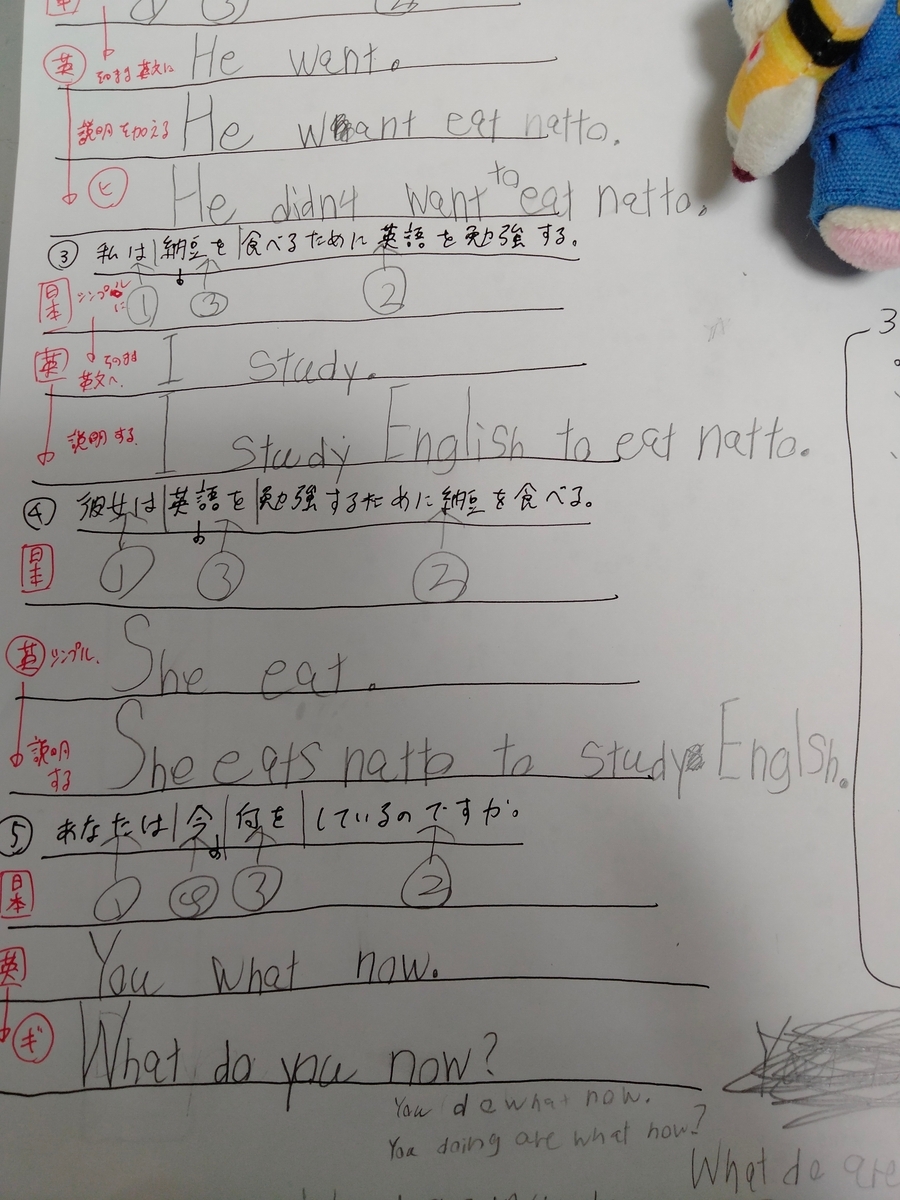 英 そのまま英文に He want.
説明を加える He want eat natto.
ヒ He didn4 want to eat natto.
③ 私は|納豆を|食べるために英語を勉強する。
日本 シンプルに ① ③ ②
英 そのまま英文へ. I study.
説明する I study English to eat natto.
④ 彼女は|英語を|勉強するために納豆を食べる。
日本 ① ③ ②
英 シンプル. She eat.
説明する She eats natto to study Englsh.
⑤ あなたは|今|何を|しているのですか。
日本 ① ③ ②
英 You what now.
ギ What do you now?
You do what now.
You doing are what now?
What do are
3